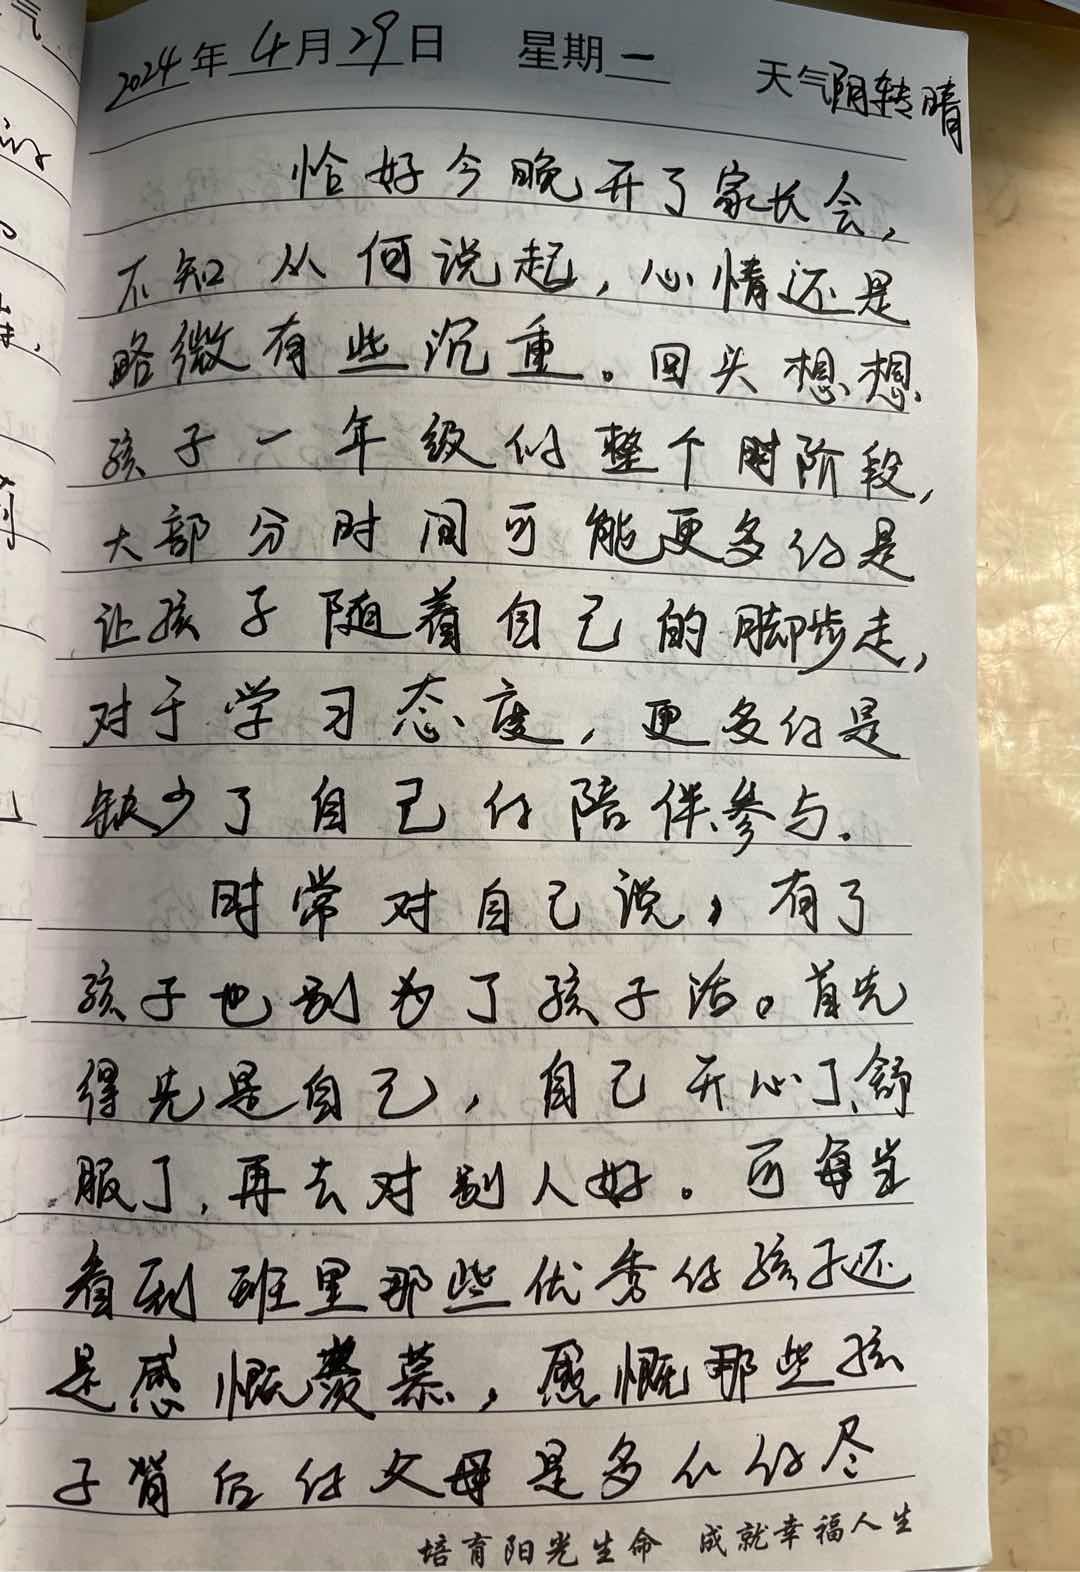 2024年4月29日 星期一 天气阴转晴
恰好今晚开了家长会,
不知从何说起,心情还是
略微有些沉重。回头想想
孩子一年级的整个时阶段,
大部分时间可能更多的是
让孩子随着自己的脚步走,
对于学习态度,更多的是
缺少了自己的陪伴参与.
时常对自己说,有了
孩子也别为了孩子活。首先
得先是自己,自己开心了、舒
服了,再去对别人好。可每当
看到班里那些优秀的孩子还
是感慨羡慕,感慨那些孩
子背后的父母是多么的尽
培育阳光生命 成就幸福人生